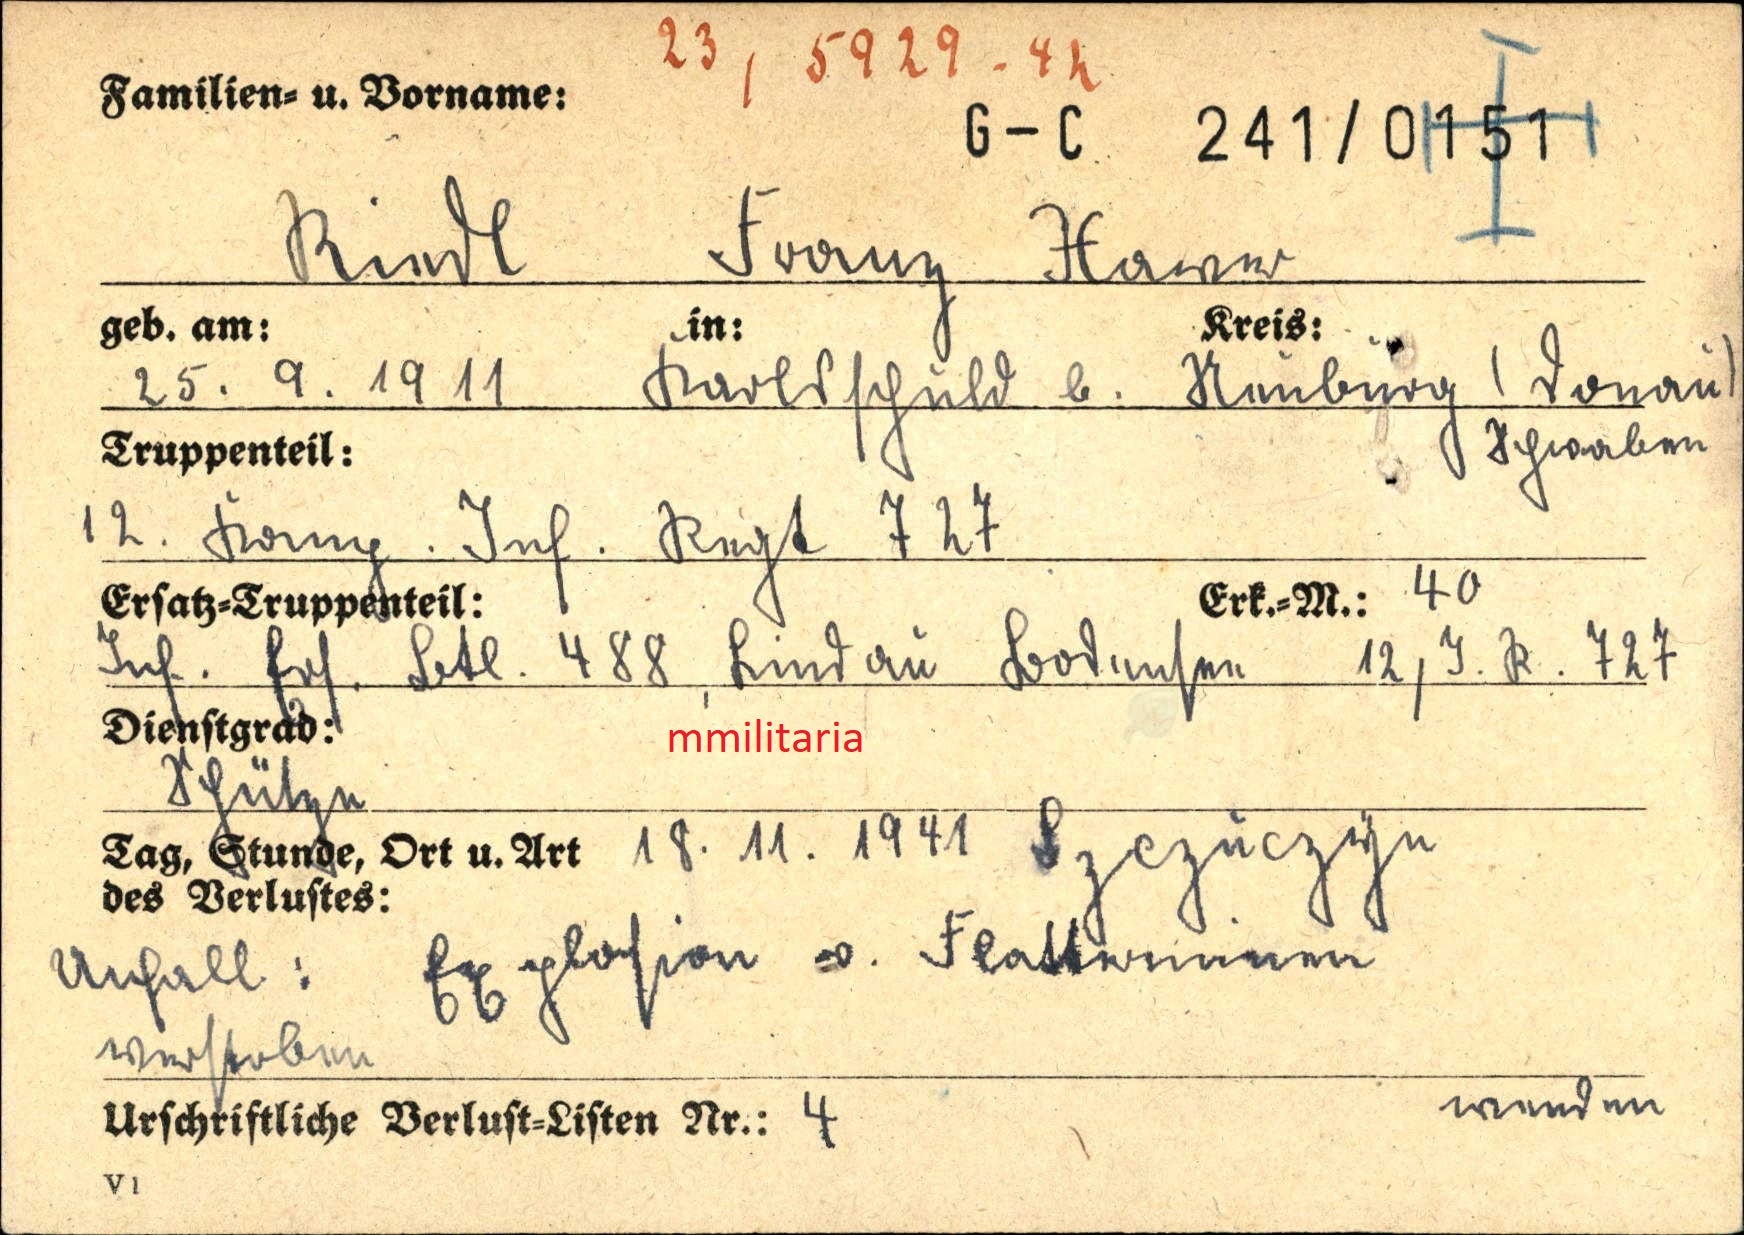 23, 5929-42
Familien- u. Vorname:
G-C 241/0151
Riedl Franz Xaver
geb. am: in: Kreis:
25. 9. 1911 Karlshuld b. Neuburg (Donau)
Schwaben
Truppenteil:
12. Komp. Inf. Regt 727
Ersatz-Truppenteil: Erk.-M.: 40
Inf. Ers. Btl. 488, Lindau Bodensee 12, J.R. 727
Dienstgrad:
mmilitaria
Schütze
Tag, Stunde, Ort u. Art 18. 11. 1941 Szczuczyn
des Verlustes:
Unfall: Explosion v. Flatterminen
verstorben
Urschriftliche Verlust-Listen Nr.: 4 wenden
V1